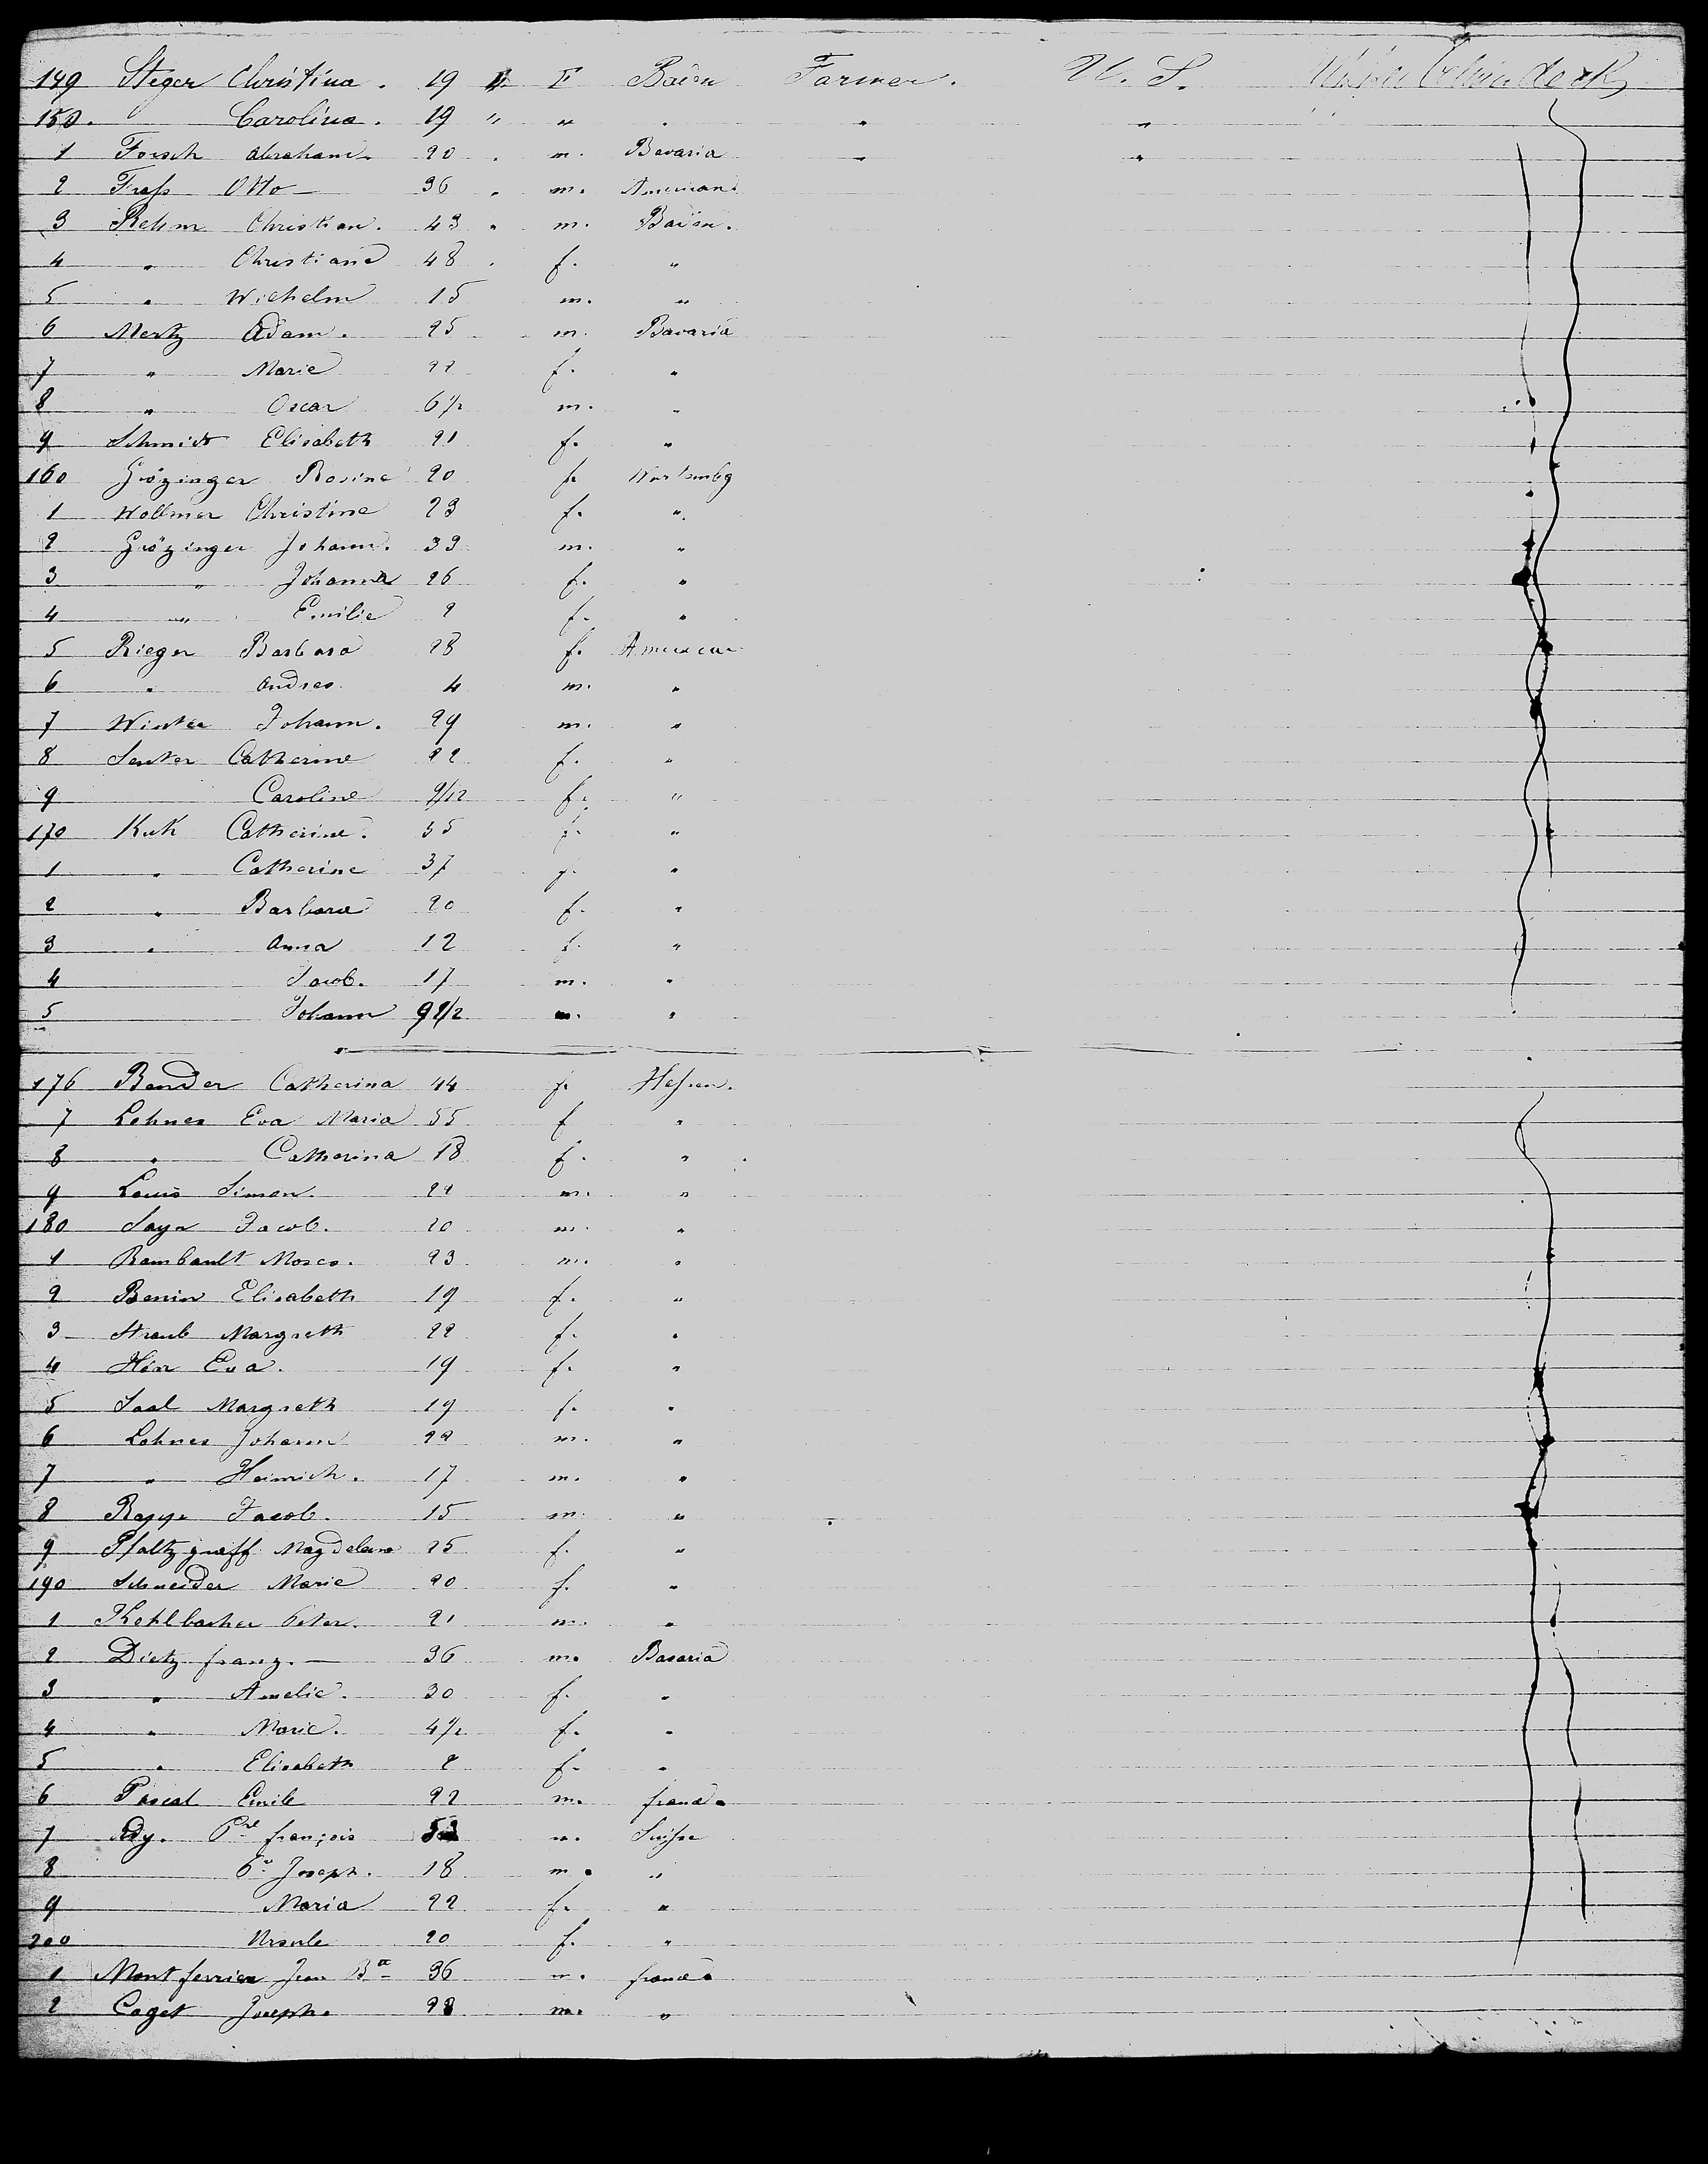 149 Steger Christina. 19 F Baden Farmer. U. S. deck
150. Carolina. 19 " " . " "
1 Forsch Abraham. 20 . m. Bavaria " "
2 Frass Otto — 36 . m. American.
3 Rehm Christian. 43 " m. Baden.
4 " Christiane 48 . f. "
5 " Wilhelm 15 m. "
6 Mertz Adam. 25 m. Bavaria
7 " Marie 22 f. "
8 " Oscar 6 1/2 m. "
9 Schmidt Elisabeth 21 f. "
160 Grözinger Rosine 20 f. Wurtembg
1 Wollmer Christine 23 f. "
2 Grözinger Johann. 33 m. "
3 " Johanna 26 f. "
4 " Emilie 2 f. "
5 Rieger Barbara 28 f. American
6 " Andres 4 m. "
7 Winter Johann. 29 m. "
8 Senter Catherine 22 f. "
9 Caroline 9/12 f. "
170 Kuk Catherine. 35 f. "
1 " Catherine 37 f. "
2 " Barbara 20 f. "
3 " Anna 12 f. "
4 Jacob. 17 m. "
5 Johann 9 1/2 m. "
176 Bender Catherina 44 f. Hessen.
7 Lehnes Eva Maria 55 f "
8 " Catherina 18 f. "
9 Louis Simon. 22 m. "
180 Sayn Jacob. 20 m. "
1 Rambault Moses. 23 m. "
2 Elisabeth 19 f. "
3 Straub Margreth 22 f. "
4 Eva. 19 f. "
5 Saal Margreth 19 f. "
6 Lehnes Johann 22 m. "
7 " Heinrich. 17 m. "
8 Rapp Jacob. 15 m. "
9 Pfaltzgraff Magdelene 25 f. "
190 Schneider Marie 20 f. "
1 Kohlbacher Peter. 21 m. "
2 Dietz franz. — 36 m. Bavaria
3 " Amelie. 30 f. "
4 " Marie. 4 1/2 f. "
5 " Elisabeth 2 f. "
6 Pascal Emile 22 m. france
7 Edy. Pre françois m. Suisse
8 Pre Joseph. 18 m. "
9 Maria 22 f. "
200 Ursule 20 f. "
1 Montferrier Jean Bte 36 m. france
2 Caget Joseph. 28 m. "